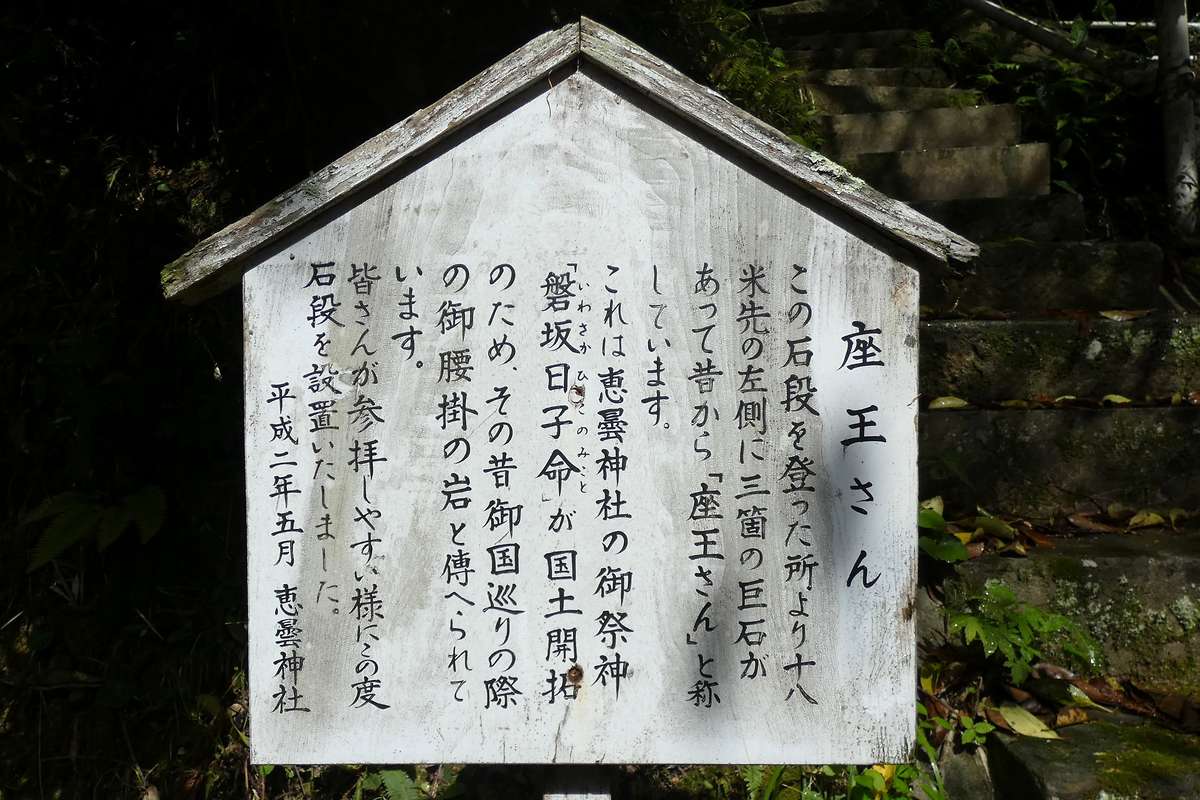 座王さん
この石段を登った所より十八
米先の左側に三箇の巨石が
あって昔から「座王さん」と称
しています。
これは恵曇神社の御祭神
「磐坂日子命」が国土開拓
いわさかひこのみこと
のため、その昔御国巡りの際
の御腰掛の岩と傳へられて
います。
皆さんが参拝しやすい様にこの度
石段を設置いたしました。
平成二年五月 恵曇神社